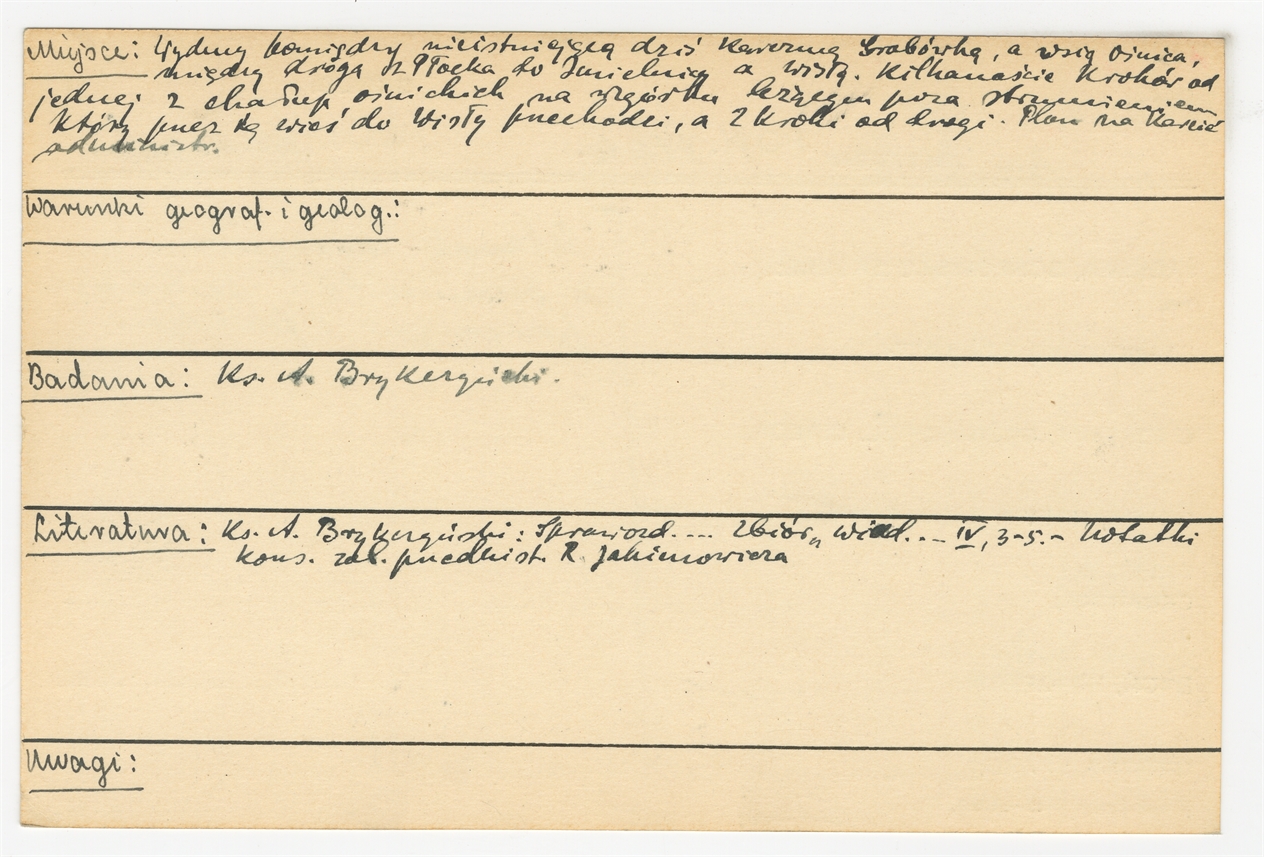 Miejsce: Wydmy pomiędzy nieistniejącą dziś karczmą Grabówką, a wsią Ośnica,
między drogą z Płocka do Imielnicy a Wisłą. Kilkanaście kroków od
jednej z chałup ośnickich na wzgórku leżącym poza strumieniem
który przez tę wieś do Wisły przechodzi, a 2 kroki od drogi. Plan na karcie
administr.
Warunki geograf. i geolog.:
Badania: Ks. A. Brykczyński.
Literatura: Ks. A. Brykczyński: Sprawozd. ... Zbiór wiad. ... IV, 3-5. - Notatki
kons. zab. przedhist. R. Jakimowicza
Uwagi: